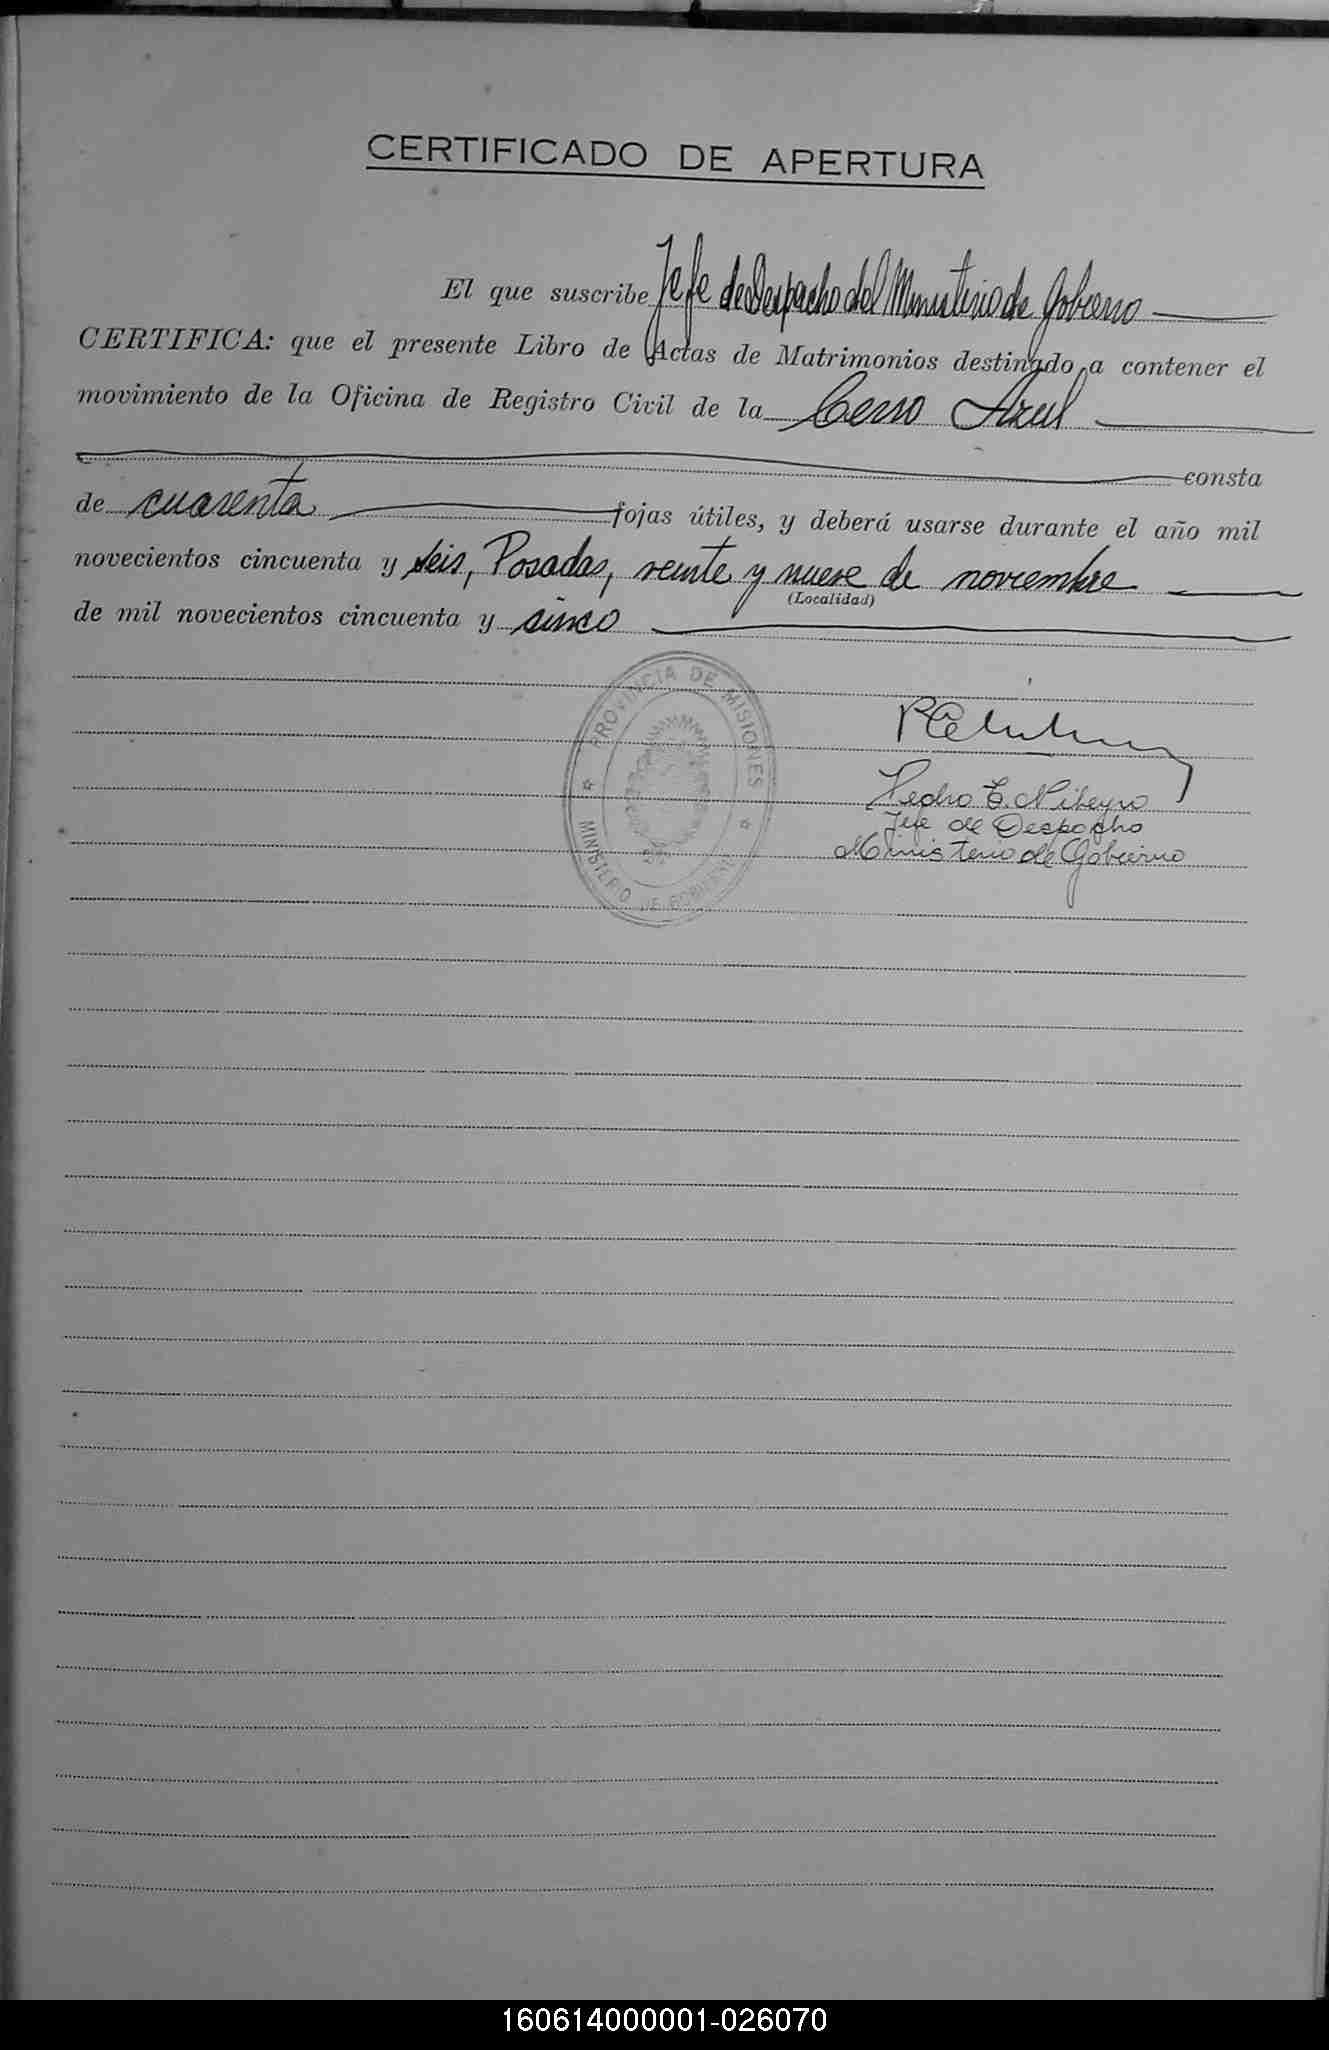 CERTIFICADO DE APERTURA
El que suscribe Jefe de Despacho del Ministerio de Gobierno
CERTIFICA: que el presente Libro de Actas de Matrimonios destinado a contener el
movimiento de la Oficina de Registro Civil de la Cerro Azul
consta
de cuarenta fojas útiles, y deberá usarse durante el año mil
novecientos cincuenta y seis, Posadas, veinte y nueve de noviembre
(Localidad)
de mil novecientos cincuenta y sinco
PROVINCIA DE MISIONES
MINISTERIO DE GOBIERNO
Pedro E. Niveyro
Jefe de Despacho
Ministerio de Gobierno
160614000001-026070